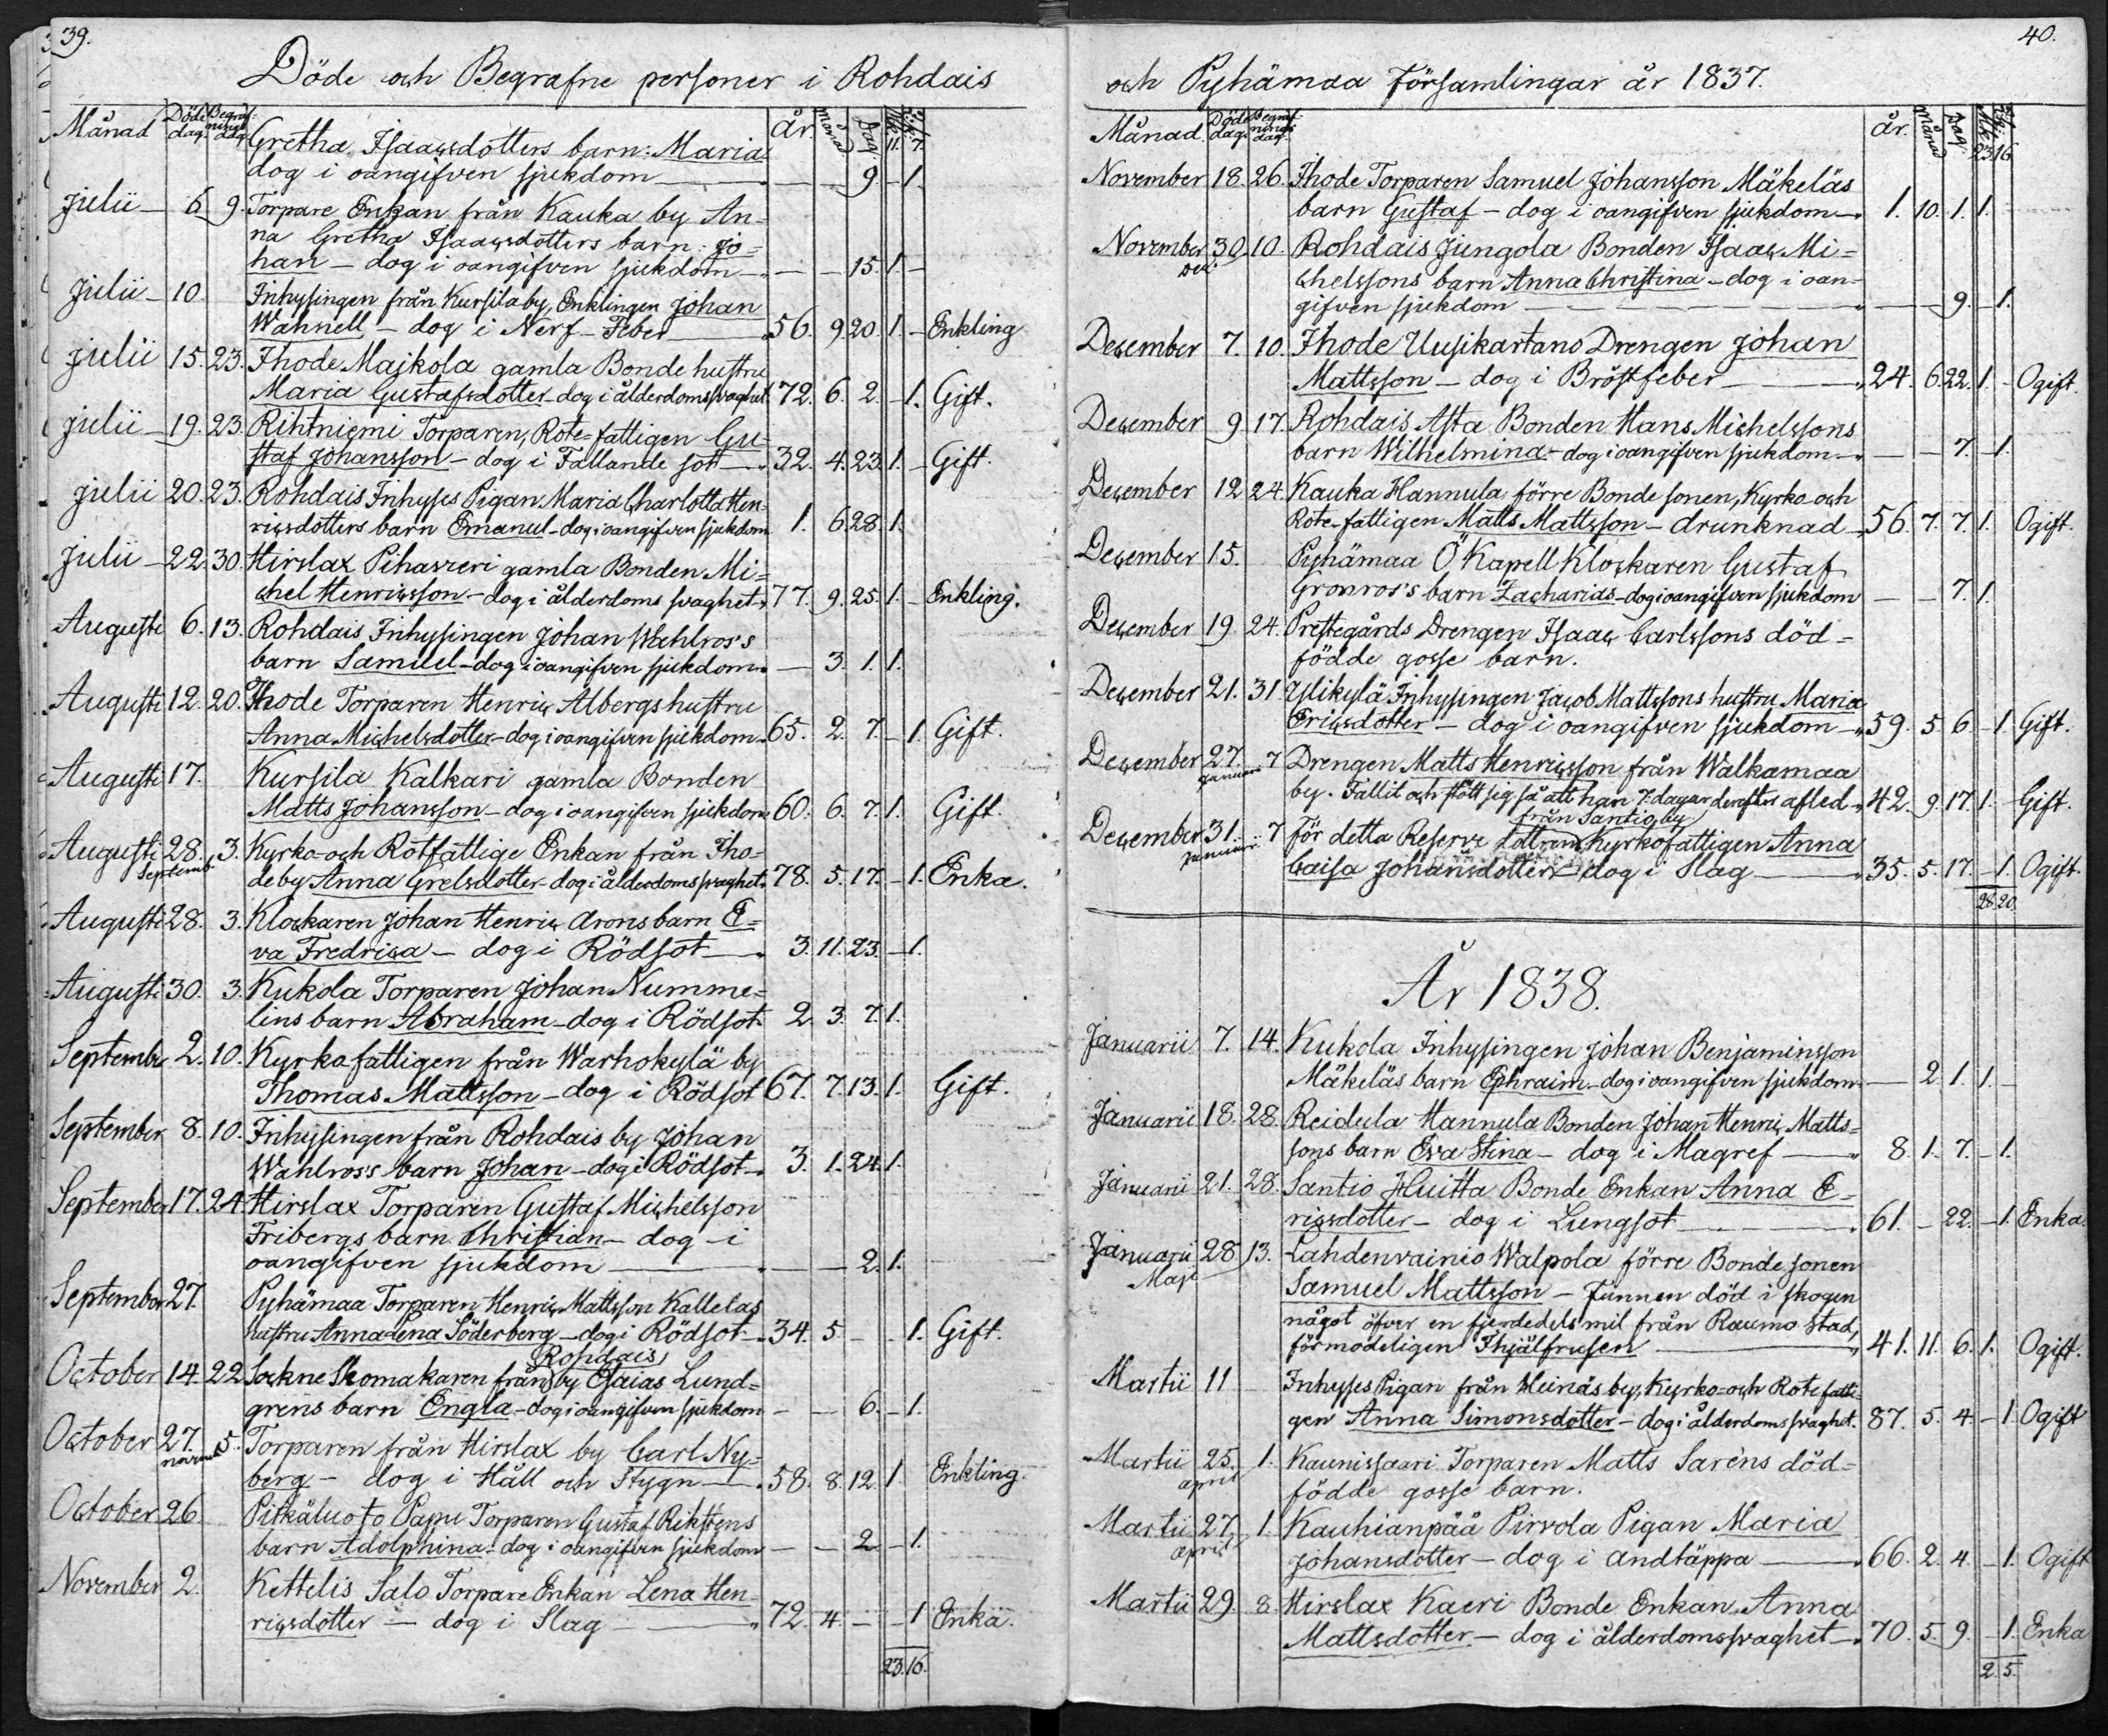 39.
Döde och Begrafne personer i Rohdais
Månad Döde dag. Begraf-nings dag. År Månad Dag. M.k. 11. Q.k. 7.
Gretha Isaacsdotters barn: Maria
dog i oangifven sjukdom — — 9 — 1.
Julii 6. 9. Torpare Enkan från Kauka by An-
na Gretha Isaacsdotters barn: Jo-
han — dog i oangifven sjukdom — — 15. 1. —
Julii 10. Inhysingen från Kursila by, Enklingen Johan
Wahnell — dog i Nerf-Feber 56. 9. 20. 1. — Enkling
Julii 15. 23. Ihode Majkola gamla Bonde hustru
Maria Gustafsdotter — dog i ålderdoms svaghet 72. 6. 2. — 1. Gift.
Julii 19. 23. Rihtniemi Torparen, Rote-fattigen Gu-
staf Johansson — dog i Fallande sot 32. 4. 23. 1. — Gift.
Julii 20. 23. Rohdais Inhyses Pigan Maria Charlotta Hen-
ricsdotters barn Emanul — dog i oangifven sjukdom 1. 6. 28. 1.
Julii 22. 30. Hirslax Pihaveri gamla Bonden Mi-
chel Henricsson — dog i ålderdoms svaghet 77. 9. 25. 1. — Enkling.
Augusti 6. 13. Rohdais Inhysingen Johan Wahlros's
barn Samuel — dog i oangifven sjukdom — 3. 1. 1.
Augusti 12. 20. Ihode Torparen Henric Albergs hustru
Anna Michelsdotter — dog i oangifven sjukdom 65. 2. 7. — 1. Gift.
Augusti 17. Kursila Kalkari gamla Bonden
Matts Johansson — dog i oangifven sjukdom 60. 6. 7. 1. Gift.
Augusti 28. Septemb. 3. Kyrko- och Rotfattige Enkan från Iho-
de by Anna Grelsdotter — dog i ålderdoms svaghet 78. 5. 17. — 1. Enka.
Augusti 28. 3. Klockaren Johan Henric Arons barn E-
va Fredrica — dog i Rödsot 3. 11. 23. — 1.
Augusti 30. 3. Kukola Torparen Johan Numme-
lins barn Abraham — dog i Rödsot 2. 3. 7. 1.
Septembr 2. 10. Kyrkofattigen från Warhokylä by
Thomas Mattsson — dog i Rödsot 67. 7. 13. 1. Gift.
September 8. 10. Inhysingen från Rohdais by Johan
Wahlros's barn Johan — dog i Rödsot 3. 1. 24. 1.
September 17. 24. Hirslax Torparen Gustaf Michelsson
Fribergs barn Christian — dog i
oangifven sjukdom — — 2. 1.
September 27. Pyhämaa Torparen Henric Mattsson Kallelas
hustru Anna Lena Söderberg — dog i Rödsot 34. 5. — — 1. Gift.
Rohdais
October 14. 22. Sockne Skomakaren från by Esaias Lund-
grens barn Engla — dog i oangifven sjukdom — — 6. — 1.
October 27. novemb 5. Torparen från Hirslax by Carl Ny-
berg — dog i Håll och Stygn 58. 8. 12. 1. Enkling.
October 26. Pitkäluoto Papu Torparen Gustaf Rikstens
barn Adolphina — dog i oangifven sjukdom — — 2 — 1.
November 2. Kettelis Salo Torpare Enkan Lena Hen-
ricsdotter — dog i Slag 72. 4. — — 1 Enka.
23. 16.
40.
och Pyhämaa Församlingar år 1837.
Månad. Döde dag. Begraf-nings dag. År. Månad Dag. M.k. 23. Q.k. 16.
November 18. 26. Ihode Torparen Samuel Johansson Mäkeläs
barn Gustaf — dog i oangifven sjukdom 1. 10. 1. 1.
November 30. Dec. 10. Rohdais Jungola Bonden Isaac Mi-
chelssons barn Anna Christina — dog i oan-
gifven sjukdom — — 9. — 1.
December 7. 10. Ihode Uusikartano Drengen Johan
Mattsson — dog i Bröstfeber 24. 6. 22. 1. — Ogift.
December 9. 17. Rohdais Asta Bonden Hans Michelssons
barn Wilhelmina — dog i oangifven sjukdom — — 7. — 1.
December 12 24. Kauka Hannula förre Bonde sonen, Kyrko- och
Rote-fattigen Matts Mattsson — drunknad 56. 7. 7. 1. Ogift.
December 15. Pyhämaa Ö Kapell Klockaren Gustaf
Gronros's barn Zacharias — dog i oangifven sjukdom — — 7. 1.
December 19 24. Prestegårds Drengen Isaac Carlssons död-
födde gosse barn.
December 21. 31. Ylikylä Inhysingen Jacob Mattssons hustru Maria
Ericsdotter — dog i oangifven sjukdom 59. 5 6 — 1. Gift.
December 27. Januari 7 Drengen Matts Henricsson från Walkamaa
by. Fallit och stött sig så att han 7. dagar derefter afled 42. 9. 17. 1. — Gift.
från Santio by
December 31. Januari 7 För detta Reserve Kyrkofattigen Anna
Caisa Johansdotter dog i Slag 35. 5. 17. — 1. Ogift.
28. 20.
År 1838.
Januarii 7. 14. Kukola Inhysingen Johan Benjaminsson
Mäkeläs barn Ephraim — dog i oangifven sjukdom — 2 1. 1. —
Januarii 18. 28. Reidula Hannula Bonden Johan Henric Matts-
sons barn Eva Stina — dog i Magref 8. 1. 7. — 1.
Januarii 21. 28. Santio Huitta Bonde Enkan Anna E-
ricsdotter — dog i Lungsot 61. — 22. — 1. Enka.
Januarii 28 Maji 13. Lahdenvainio Walpola förre Bonde sonen
Samuel Mattsson — Funnen död i skogen
något öfver en fjerdedels mil från Raumo Stad,
förmodeligen Ihjälfrusen 41. 11. 6. 1. Ogift.
Martii 11 Inhyses Pigan från Heinäs by, Kyrko- och Rote fatti-
gen Anna Simonsdotter — dog i ålderdoms svaghet. 87. 5. 4 — 1 Ogift
Martii 25. april 1. Kaunissaari Torparen Matts Saréns död-
födde gosse barn.
Martii 27. april 1. Kauhianpää Pirvola Pigan Maria
Johansdotter — dog i andtäppa 66. 2. 4. — 1. Ogift
Martii 29. 8. Hirslax Kaeri Bonde Enkan Anna
Mattsdotter — dog i ålderdomssvaghet 70. 5. 9. — 1. Enka
2. 5.